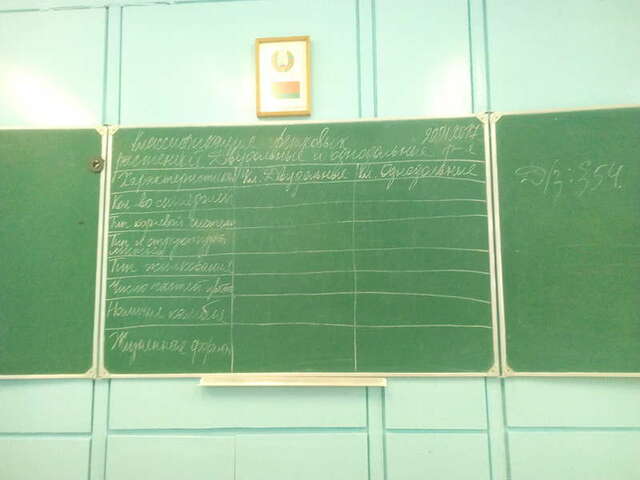 Классификация цветковых
растений. Двудольные и однодольные р-я
Характеристика Кл. Двудольные Кл. Однодольные
Кол-во семядолей
Тип корневой системы
Тип и структура
Тип жилкования
Число частей цветка
Наличие камбия
Жизненная форма
Д/з: § 54.